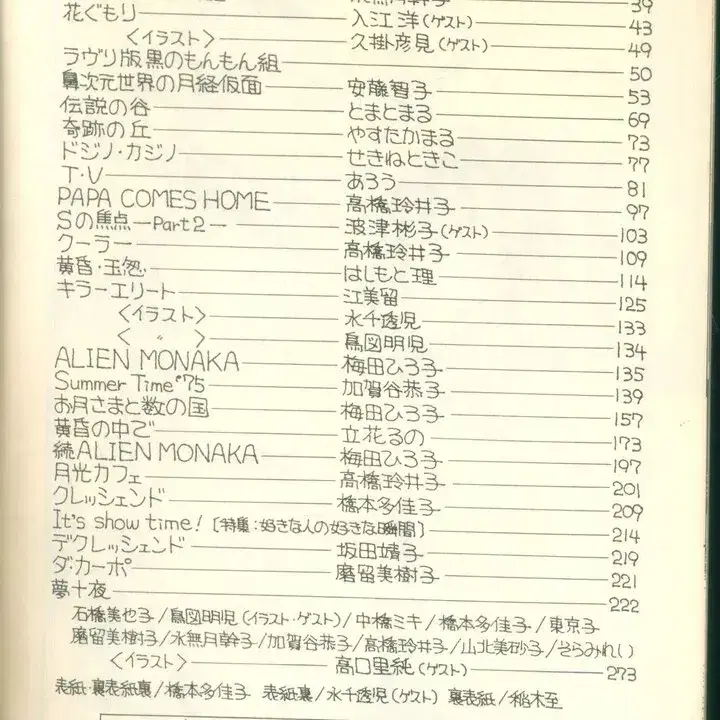 39
花ぐもり 入江 洋(ゲスト) 43
〈イラスト〉 久掛彦見(ゲスト) 49
ラヴリ版黒のもんもん組 50
鼻次元世界の月経仮面 安藤智子 53
伝説の谷 とまとまる 69
奇跡の丘 やすたかまる 73
ドジノ・カジノ せきねときこ 77
T・V あろう 81
PAPA COMES HOME 高橋玲井子 97
Sの焦点—Part2— 波津彬子(ゲスト) 103
クーラー 高橋玲井子 109
黄昏・玉怨 はしもと理 114
キラーエリート 江美留 125
〈イラスト〉 水千透児 133
〈 〃 〉 鳥図明児 134
ALIEN MONAKA 梅田ひろ子 135
Summer Time '75 加賀谷恭子 139
お月さまと数の国 梅田ひろ子 157
黄昏の中で 立花るの 173
続ALIEN MONAKA 梅田ひろ子 197
月光カフェ 高橋玲井子 201
クレッシェンド 橋本多佳子 209
It's show time! [特集:好きな人の好きな瞬間] 214
デクレッシェンド 坂田靖子 219
ダ・カーポ 磨留美樹子 221
夢十夜 222
石橋美也子/鳥図明児(イラスト・ゲスト)/中橋ミキ/橋本多佳子/東京子
磨留美樹子/水無月幹子/加賀谷恭子/高橋玲井子/山北美砂子/そらみれい
〈イラスト〉 高口里純(ゲスト) 273
表紙・裏表紙裏/橋本多佳子 表紙裏/水千透児(ゲスト) 裏表紙/稲木至